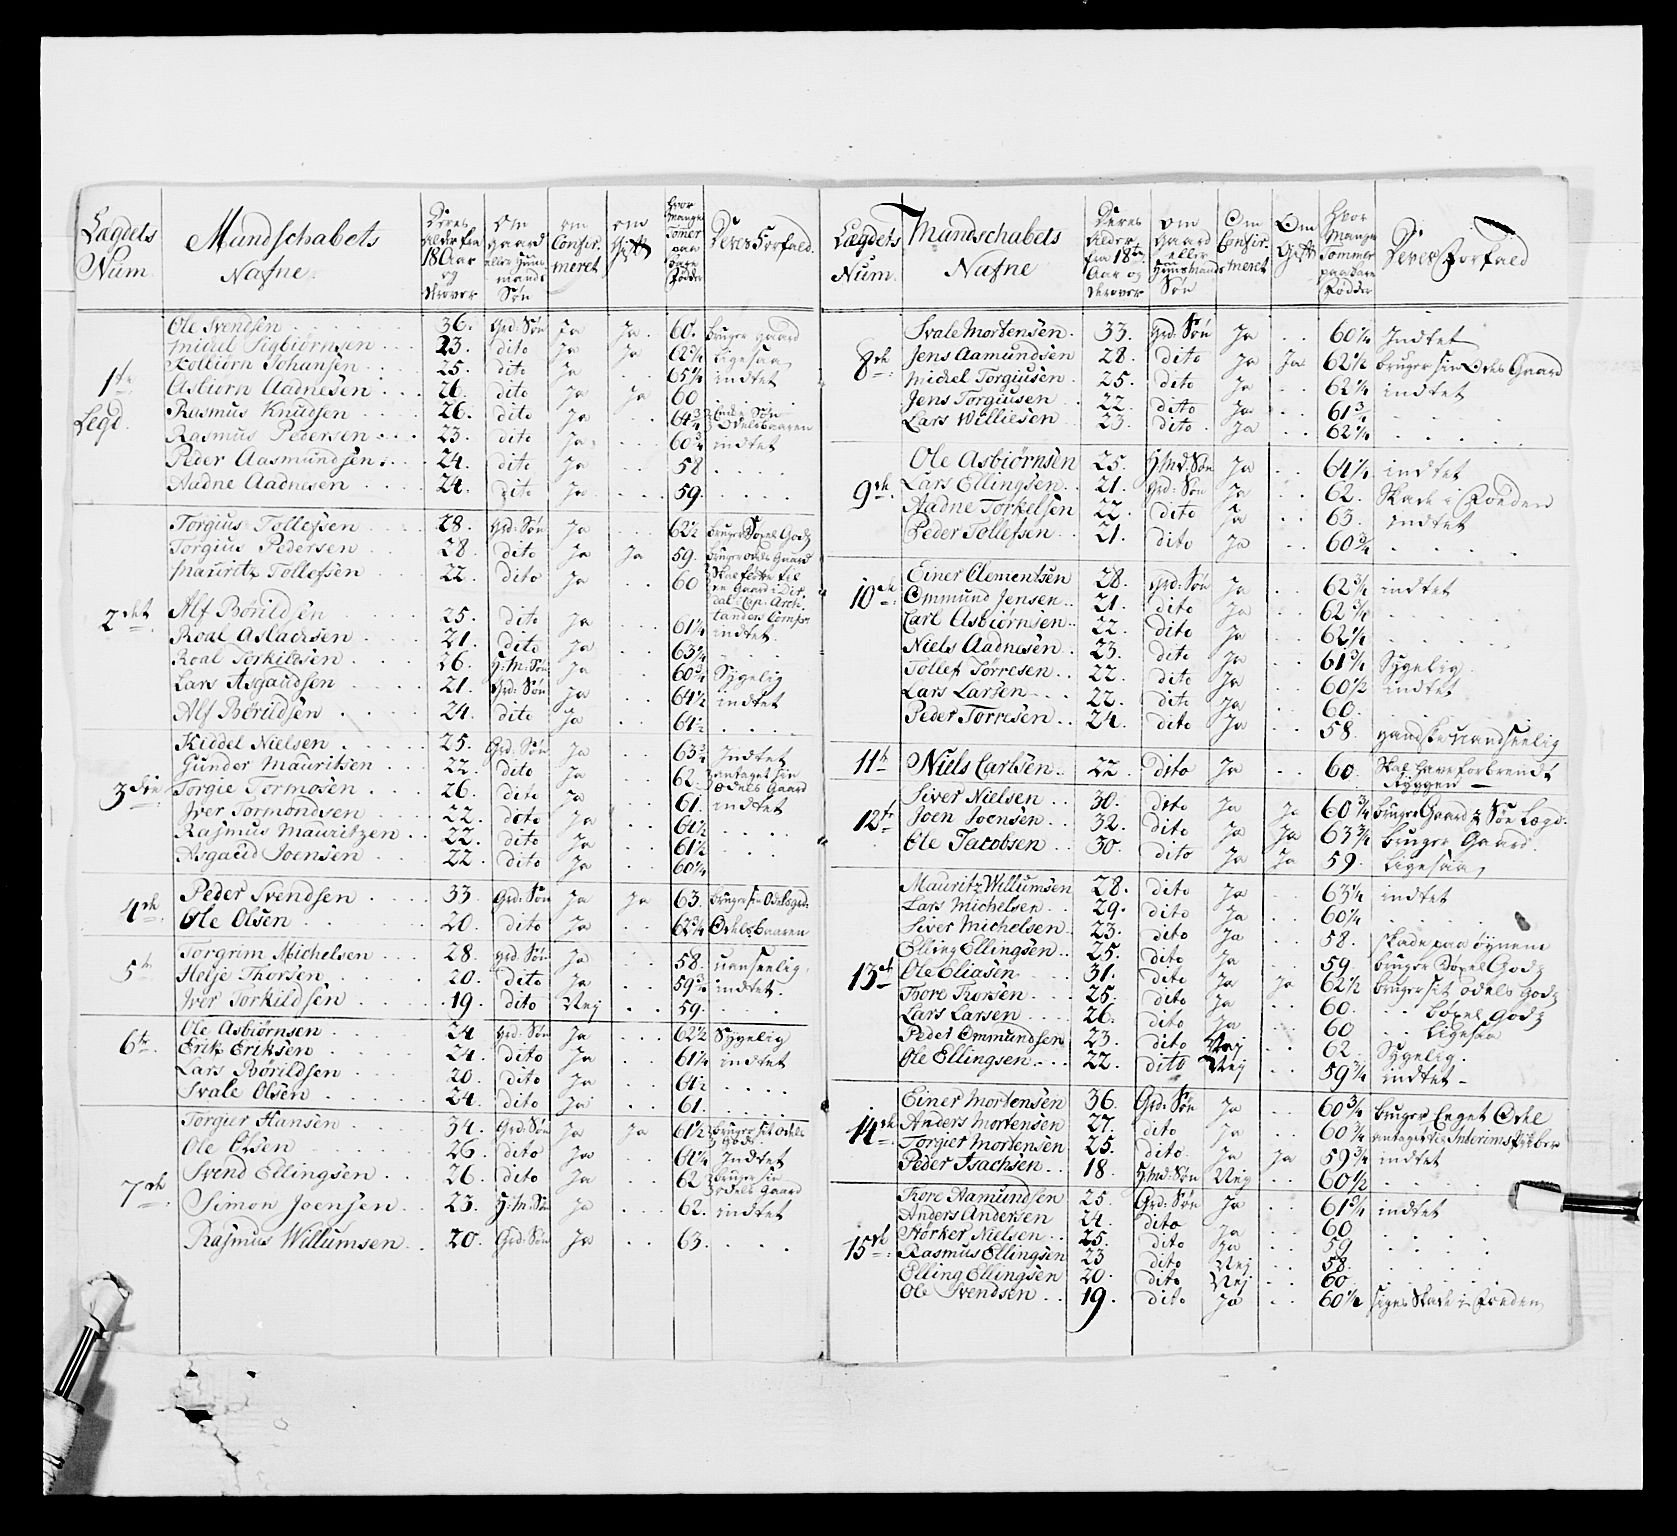 Lægdets Num
Mandschabets Nafne
Deres Alder fra 18 Aar og derover
Om Gaard eller Huusmands Søn
om Confirmeret
om Gift
Hvor mange Tomer paa bare Fødder
Deres Forfald.
1te Legd.
Ole Svendsen 36. Grd: Søn Ja Ja 60. bruger gaard
Michel Sigbiørnsen 23. dito Ja Ja 62 3/4 ligesaa
Kolbiørn Johansen 25. dito Ja 65 1/4 indtet
Asbiørn Aadnesen 26. dito Ja Ja 60
Rasmus Knudsen 26. dito Ja 64 3/4
Rasmus Pedersen 23. dito Ja 60 3/4 indtet
Peder Aasmundsen 24. dito Ja 58
Aadne Aadnesen 24. dito Ja 59.
2det
Torgius Tollefsen 28. Grd: Søn Ja 62 1/2
Torgius Pedersen 28. dito Ja Ja 59. bruger odels Gaard
Mauritz Tollefsen 22. dito Ja 60
Alf Børildsen 25. dito Ja 61 1/4 indtet.
Roal Aslachsen 21. dito Ja 63 1/4
Roal Torkildsen 26. H:M: Søn Ja 60 3/4 Sygelig
Lars Asgaudsen 21. Grd: Søn Ja 64 1/2 indtet
Alf Børildsen 24. dito Ja 61 1/2
3die
Kiddel Nielsen 25. Grd: Søn Ja 63 1/2 Indtet
Gunder Mauritsen 22. dito Ja 62 antaget sin odels Gaard
Torgie Tormosen 26. dito Ja 61. indtet
Iver Tormondsen 22. dito Ja 61 1/2
Rasmus Mauritzen 22. dito Ja 61 1/2
Asgaud Joensen 22. dito Ja 60 1/4
4de
Peder Svendsen 33. Grd: Søn Ja Ja 63. bruger sin Odelsgrd:
Ole Olsen 20. dito Ja 62 3/4 Odelsbaaren
5te
Torgrim Michelsen 28. Grd: Søn Ja 58. uanseelig
Helje Thorsen 20. dito Ja 59 3/4 indtet.
Iver Torkildsen 19. dito Nej 59.
6te
Ole Asbiørnsen 24 Grd: Søn Ja 62 1/2 Sygelig
Erik Eriksen 21. dito Ja 61 1/4 indtet
Lars Børildsen 20. dito Ja 61 1/2
Svale Olsen 24. dito Ja 61.
7de
Torgier Hansen 34. Grd: Søn Ja Ja 61 1/2 bruger sit odels Gods
Ole Olsen 26. dito Ja 61 1/4 Indtet
Svend Ellingsen 26. dito Ja 62 bruger sin odels Gaard
Simon Joensen 23. H:M: Søn Ja 62. indtet
Rasmus Willumsen 20. Grd: Søn Ja 63.
Lægdets Num.
Mandschabets Nafne
Deres Alder fra 18 Aar og derover
Om Gaard eller Huusmands Søn
Om Confirmeret
Om Gift
Hvor Mange Tommer paa bare Fødder
Deres Forfald
8de
Svale Mortensen 33. Grd: Søn Ja 60 1/4 Indtet
Jens Aamundsen 28. dito Ja Ja 62 1/2 bruger sin Odels Gaard
Michel Torgiusen 25. dito Ja 62 1/4 indtet
Jens Torgiusen 22. dito Ja 61 3/4
Lars Williesen 23. dito Ja 62 1/4
9de
Ole Asbiørnsen 25. H:Md: Søn Ja 64 1/2 indtet
Lars Ellingsen 21. Grd: Søn Ja 62. Skade i Foeden
Aadne Torkelsen 22. dito Ja 63. indtet
Peder Tollefsen 21. dito Ja 60 3/4
10de
Einer Clementsen 28. Grd: Søn Ja 62 3/4 indtet
Ommund Jensen 21. dito Ja 62 3/4
Carl Asbiørnsen 22. dito Ja 62 1/4
Niels Aadnesen 23. dito Ja 61 3/4 Sygelig
Tollef Torresen 22. dito Ja 60 1/2 indtet
Lars Larsen 22. dito Ja 60.
Peder Torresen 24. dito Ja 58. gandske uandseelig
11te
Niels Carlsen 22. dito Ja 60. Skal have forbrendt Ryggen
12te
Siver Nielsen 30. dito Ja Ja 60 3/4 bruger Gaard
Joen Joensen 32. dito Ja Ja 63 3/4 bruger Gaard.
Ole Jacobsen 30. dito Ja Ja 59. ligesaa
13de
Mauritz Willumsen 28. dito Ja 63 1/4 indtet
Lars Michelsen 29. dito Ja 60 1/4
Siver Michelsen 23. dito Ja 58. skade paa øynene
Elling Ellingsen 25. dito Ja 59 bruger
Ole Eliasen 31. dito Ja Ja 62 1/2 bruger sit odels Gods
Tore Thorsen 25. dito Ja 60.
Lars Larsen 26. dito Ja 60 ligesaa
Peder Ommundsen 23. dito Nej 62. Sygelig.
Ole Ellingsen 22. dito Nej 59 3/4 indtet
14de
Einer Mortensen 36. Grd: Søn Ja 60 3/4 bruger Eeget Odel
Anders Mortensen 27. dito Ja 60 3/4
Torgier Mortensen 25. dito. Ja Ja 59 3/4 indtet
Peder Isachsen 18. H:Md: Søn Nej 60 1/2
15de
Thore Aamundsen 25. Grd: Søn Ja 61 3/4 indtet
Anders Andersen 24. dito Ja 60
Størker Nielsen 25. dito Ja 59
Rasmus Ellingsen 23 dito Nej 58.
Elling Ellingsen 20. dito Nej 60
Ole Svendsen 19. dito Ja 60 1/2 siges Skade i Foeden